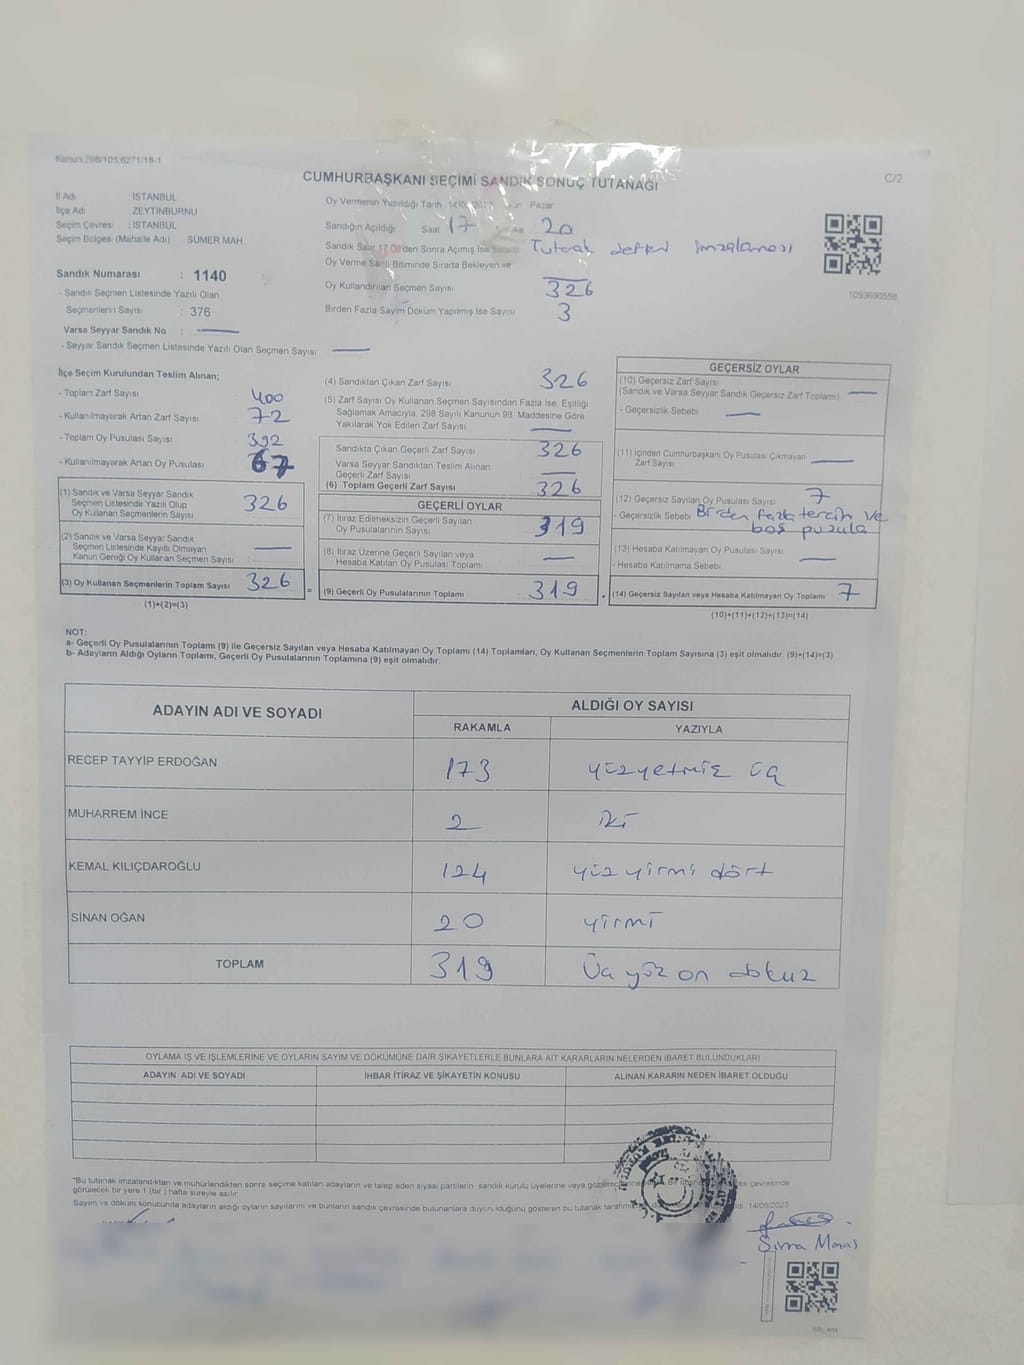 Kanun 298/105;6271/18-1
C/2
CUMHURBAŞKANI SEÇİMİ SANDIK SONUÇ TUTANAĞI
İl Adı İSTANBUL
İlçe Adı ZEYTİNBURNU
Seçim Çevresi : İSTANBUL
Seçim Bölgesi (Mahalle Adı) SÜMER MAH
Sandık Numarası : 1140
- Sandık Seçmen Listesinde Yazılı Olan
Seçmenlerin Sayısı : 376
Varsa Seyyar Sandık No :
- Seyyar Sandık Seçmen Listesinde Yazılı Olan Seçmen Sayısı
Oy Vermenin Yapıldığı Tarih Pazar
Sandığın Açıldığı Saat 17 20
Sandık Saat 17.00'den Sonra Açımış İse Tutanak defteri imzalaması
Oy Verme Saati Bitiminde Sırada Bekleyen ve
Oy Kullandırılan Seçmen Sayısı 326
Birden Fazla Sayım Döküm Yapılmış İse Sayısı 3
1093690558
İlçe Seçim Kurulundan Teslim Alınan;
- Toplam Zarf Sayısı 400
- Kullanılmayarak Artan Zarf Sayısı 72
- Toplam Oy Pusulası Sayısı 392
- Kullanılmayarak Artan Oy Pusulası 67
(1) Sandık ve Varsa Seyyar Sandık
Seçmen Listesinde Yazılı Olup
Oy Kullanan Seçmenlerin Sayısı 326
(2) Sandık ve Varsa Seyyar Sandık
Seçmen Listesinde Kayıtlı Olmayan
Kanun Gereği Oy Kullanan Seçmen Sayısı
(3) Oy Kullanan Seçmenlerin Toplam Sayısı 326
(1)+(2)=(3)
(4) Sandıktan Çıkan Zarf Sayısı 326
(5) Zarf Sayısı Oy Kullanan Seçmen Sayısından Fazla İse, Eşitliği
Sağlamak Amacıyla, 298 Sayılı Kanunun 98. Maddesine Göre
Yakılarak Yok Edilen Zarf Sayısı
Sandıkta Çıkan Geçerli Zarf Sayısı 326
Varsa Seyyar Sandıktan Teslim Alınan
Geçerli Zarf Sayısı
(6) Toplam Geçerli Zarf Sayısı 326
GEÇERLİ OYLAR
(7) İtiraz Edilmeksizin Geçerli Sayılan
Oy Pusulalarının Sayısı 319
(8) İtiraz Üzerine Geçerli Sayılan veya
Hesaba Katılan Oy Pusulası Toplamı
(9) Geçerli Oy Pusulalarının Toplamı 319
GEÇERSİZ OYLAR
(10) Geçersiz Zarf Sayısı
(Sandık ve Varsa Seyyar Sandık Geçersiz Zarf Toplamı)
- Geçersizlik Sebebi
(11) İçinden Cumhurbaşkanı Oy Pusulası Çıkmayan
Zarf Sayısı
(12) Geçersiz Sayılan Oy Pusulası Sayısı 7
- Geçersizlik Sebebi Birden fazla tercih ve
boş pusula
(13) Hesaba Katılmayan Oy Pusulası Sayısı
- Hesaba Katılmama Sebebi
(14) Geçersiz Sayılan veya Hesaba Katılmayan Oy Toplamı 7
(10)+(11)+(12)+(13)=(14)
NOT:
a- Geçerli Oy Pusulalarının Toplamı (9) ile Geçersiz Sayılan veya Hesaba Katılmayan Oy Toplamı (14) Toplamları, Oy Kullanan Seçmenlerin Toplam Sayısına (3) eşit olmalıdır. (9)+(14)=(3)
b- Adayların Aldığı Oyların Toplamı, Geçerli Oy Pusulalarının Toplamına (9) eşit olmalıdır.
ADAYIN ADI VE SOYADI
ALDIĞI OY SAYISI
RAKAMLA YAZIYLA
RECEP TAYYİP ERDOĞAN 173 yüzyetmiş üç
MUHARREM İNCE 2 iki
KEMAL KILIÇDAROĞLU 124 yüz yirmi dört
SİNAN OĞAN 20 yirmi
TOPLAM 319 Üç yüz on dokuz
OYLAMA İŞ VE İŞLEMLERİNE VE OYLARIN SAYIM VE DÖKÜMÜNE DAİR ŞİKAYETLERLE BUNLARA AİT KARARLARIN NELERDEN İBARET BULUNDUKLARI
ADAYIN ADI VE SOYADI İHBAR İTİRAZ VE ŞİKAYETİN KONUSU ALINAN KARARIN NEDEN İBARET OLDUĞU
*Bu tutanak imzalandıktan ve mühürlendikten sonra seçime katılan adayların ve talep eden siyasi partilerin sandık kurulu üyelerine veya çevresinde
görülecek bir yere 1 (bir ) hafta süreyle asılır.
Sayım ve döküm sonucunda adayların aldığı oyların sayılarını ve bunların sandık çevresinde bulunanlara duyurulduğunu gösteren bu tutanak 14/05/2023